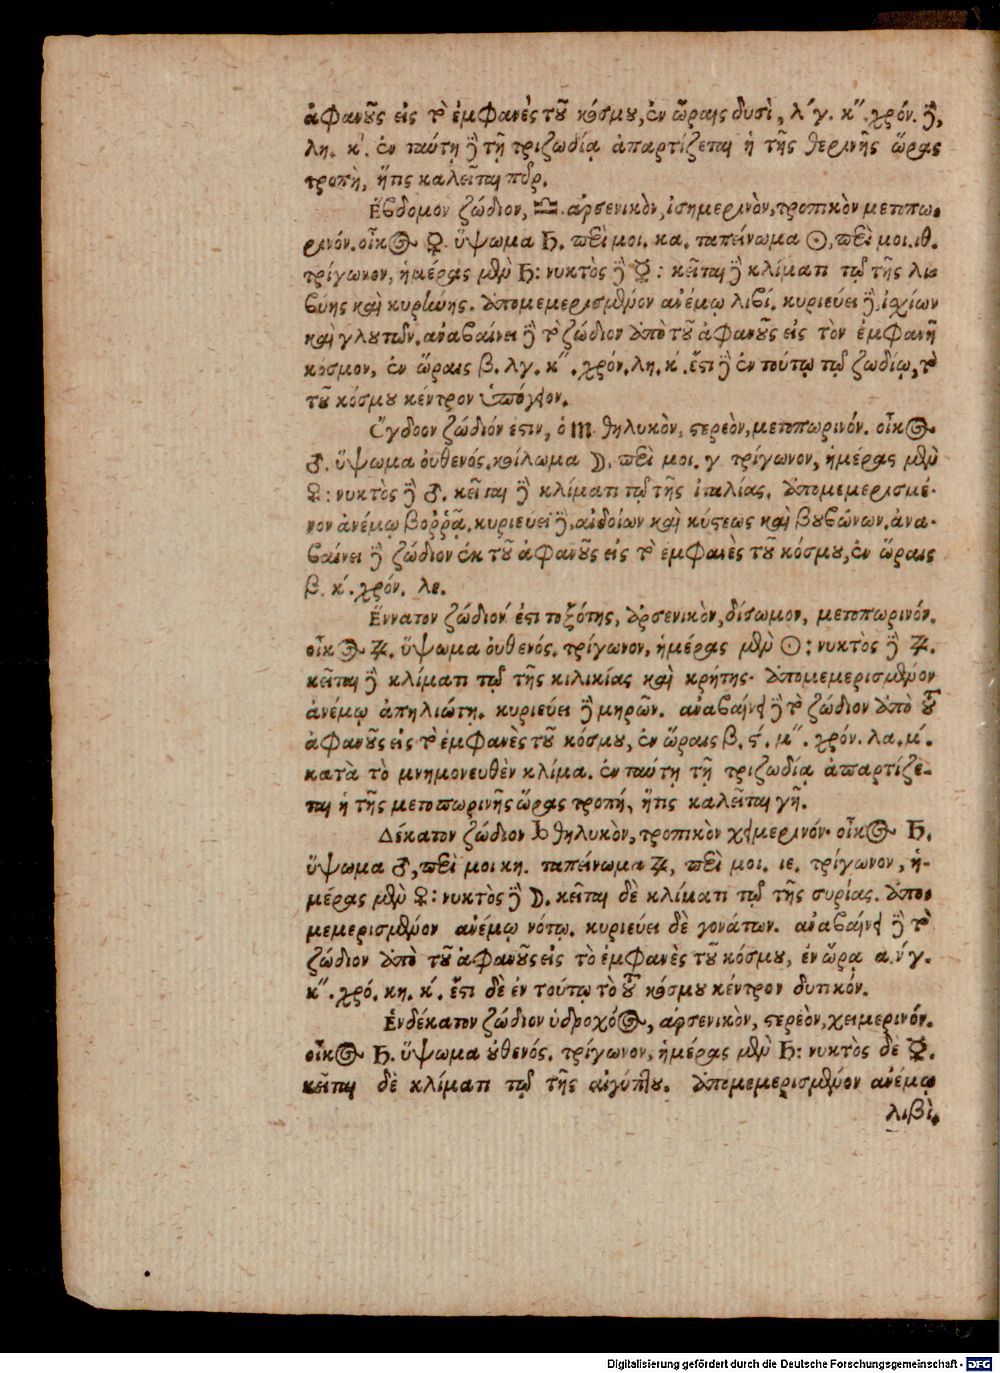 ἀφανοῦς εἰς τὸ ἐμφανὲς τοῦ κόσμου, ἐν ὥραις δυσὶ, λ´γ. κ´´. χρόν. δὲ,
λη. κ´. ἐν ταύτῃ δὲ τῇ τριζωδίᾳ ἀπαρτίζεται ἡ τῆς θερινῆς ὥρας
τροπὴ, ἥτις καλεῖται πῦρ.
Ἕβδομον ζώδιον, ♎. ἀρσενικὸν, ἰσημερινὸν, τροπικὸν μετοπω-
ρινόν. οἶκος ♀. ὕψωμα ♄. περὶ μοι. κα. ταπείνωμα ☉, περὶ μοι. ιθ.
τρίγωνον, ἡμέρας μὲν ♄: νυκτὸς δὲ ☿: κεῖται δὲ κλίματι τῷ τῆς λι-
βύης καὶ κυρήνης. ὑπομεμερισμένον ἀνέμῳ λιβί. κυριεύει δὲ, ἰσχίων
καὶ γλουτῶν. ἀναβαίνει δὲ τὸ ζώδιον ἀπὸ τοῦ ἀφανοῦς εἰς τὸν ἐμφανῆ
κόσμον, ἐν ὥραις β. λγ. κ´´. χρόν. λη. κ´. ἔστι δὲ ἐν τούτῳ τῷ ζωδίῳ, τὸ
τοῦ κόσμου κέντρον ὑπόγειον.
Ὄγδοον ζώδιόν ἐστιν, ὁ ♏. θηλυκὸν, στερεὸν, μετοπωρινόν. οἶκος
♂. ὕψωμα οὐθενός. κοίλωμα ☽. περὶ μοι. γ τρίγωνον, ἡμέρας μὲν
♀: νυκτὸς δὲ ♂. κεῖται δὲ κλίματι τῷ τῆς ἰταλίας. ὑπομεμερισμέ-
νον ἀνέμῳ βοῤῥᾷ. κυριεύει δὲ, αἰδοίων καὶ κύστεως καὶ βουβώνων. ἀνα-
βαίνει δὲ ζώδιον ἐκ τοῦ ἀφανοῦς εἰς τὸ ἐμφανὲς τοῦ κόσμου, ἐν ὥραις
β. κ´. χρόν. λε.
Ἔννατον ζώδιόν ἐστι τοξότης, ἀρσενικὸν, δίσωμον, μετοπωρινόν.
οἶκος ♃. ὕψωμα οὐθενός. τρίγωνον, ἡμέρας μὲν ☉: νυκτὸς δὲ ♃.
κεῖται δὲ κλίματι τῷ τῆς κιλικίας καὶ κρήτης. ὑπομεμερισμένον
ἀνέμῳ ἀπηλιώτῃ. κυριεύει δὲ μηρῶν. ἀναβαίνει δὲ τὸ ζώδιον ἀπὸ τοῦ
ἀφανοῦς εἰς τὸ ἐμφανὲς τοῦ κόσμου, ἐν ὥραις β. ϛ´. μ´´. χρόν. λα. μ´.
κατὰ τὸ μνημονευθὲν κλίμα. ἐν ταύτῃ τῇ τριζωδίᾳ ἀπαρτίζε-
ται ἡ τῆς μετοπωρινῆς ὥρας τροπή, ἥτις καλεῖται γῆ.
Δέκατον ζώδιον ♑ θηλυκὸν, τροπικὸν χειμερινόν. οἶκος ♄.
ὕψωμα ♂, περὶ μοι κη. ταπείνωμα ♃, περὶ μοι. ιε. τρίγωνον, ἡ-
μέρας μὲν ♀: νυκτὸς δὲ ☽. κεῖται δὲ κλίματι τῷ τῆς συρίας. ὑπο-
μεμερισμένον ἀνέμῳ νότῳ. κυριεύει δὲ γονάτων. ἀναβαίνει δὲ τὸ
ζώδιον ἀπὸ τοῦ ἀφανοῦς εἰς τὸ ἐμφανὲς τοῦ κόσμου, ἐν ὥρᾳ α. ν´γ.
κ´´. χρό. κη. κ´. ἔστι δὲ ἐν τούτῳ τὸ τοῦ κόσμου κέντρον δυτικόν.
Ἑνδέκατον ζώδιον ὑδροχόος, ἀρσενικὸν, στερεὸν, χειμερινόν.
οἶκος ♄. ὕψωμα οὐθενός. τρίγωνον, ἡμέρας μὲν ♄: νυκτὸς δὲ ☿.
κεῖται δὲ κλίματι τῷ τῆς αἰγύπτου. ὑπομεμερισμένον ἀνέμῳ
λιβὶ.
Digitalisierung gefördert durch die Deutsche Forschungsgemeinschaft - DFG